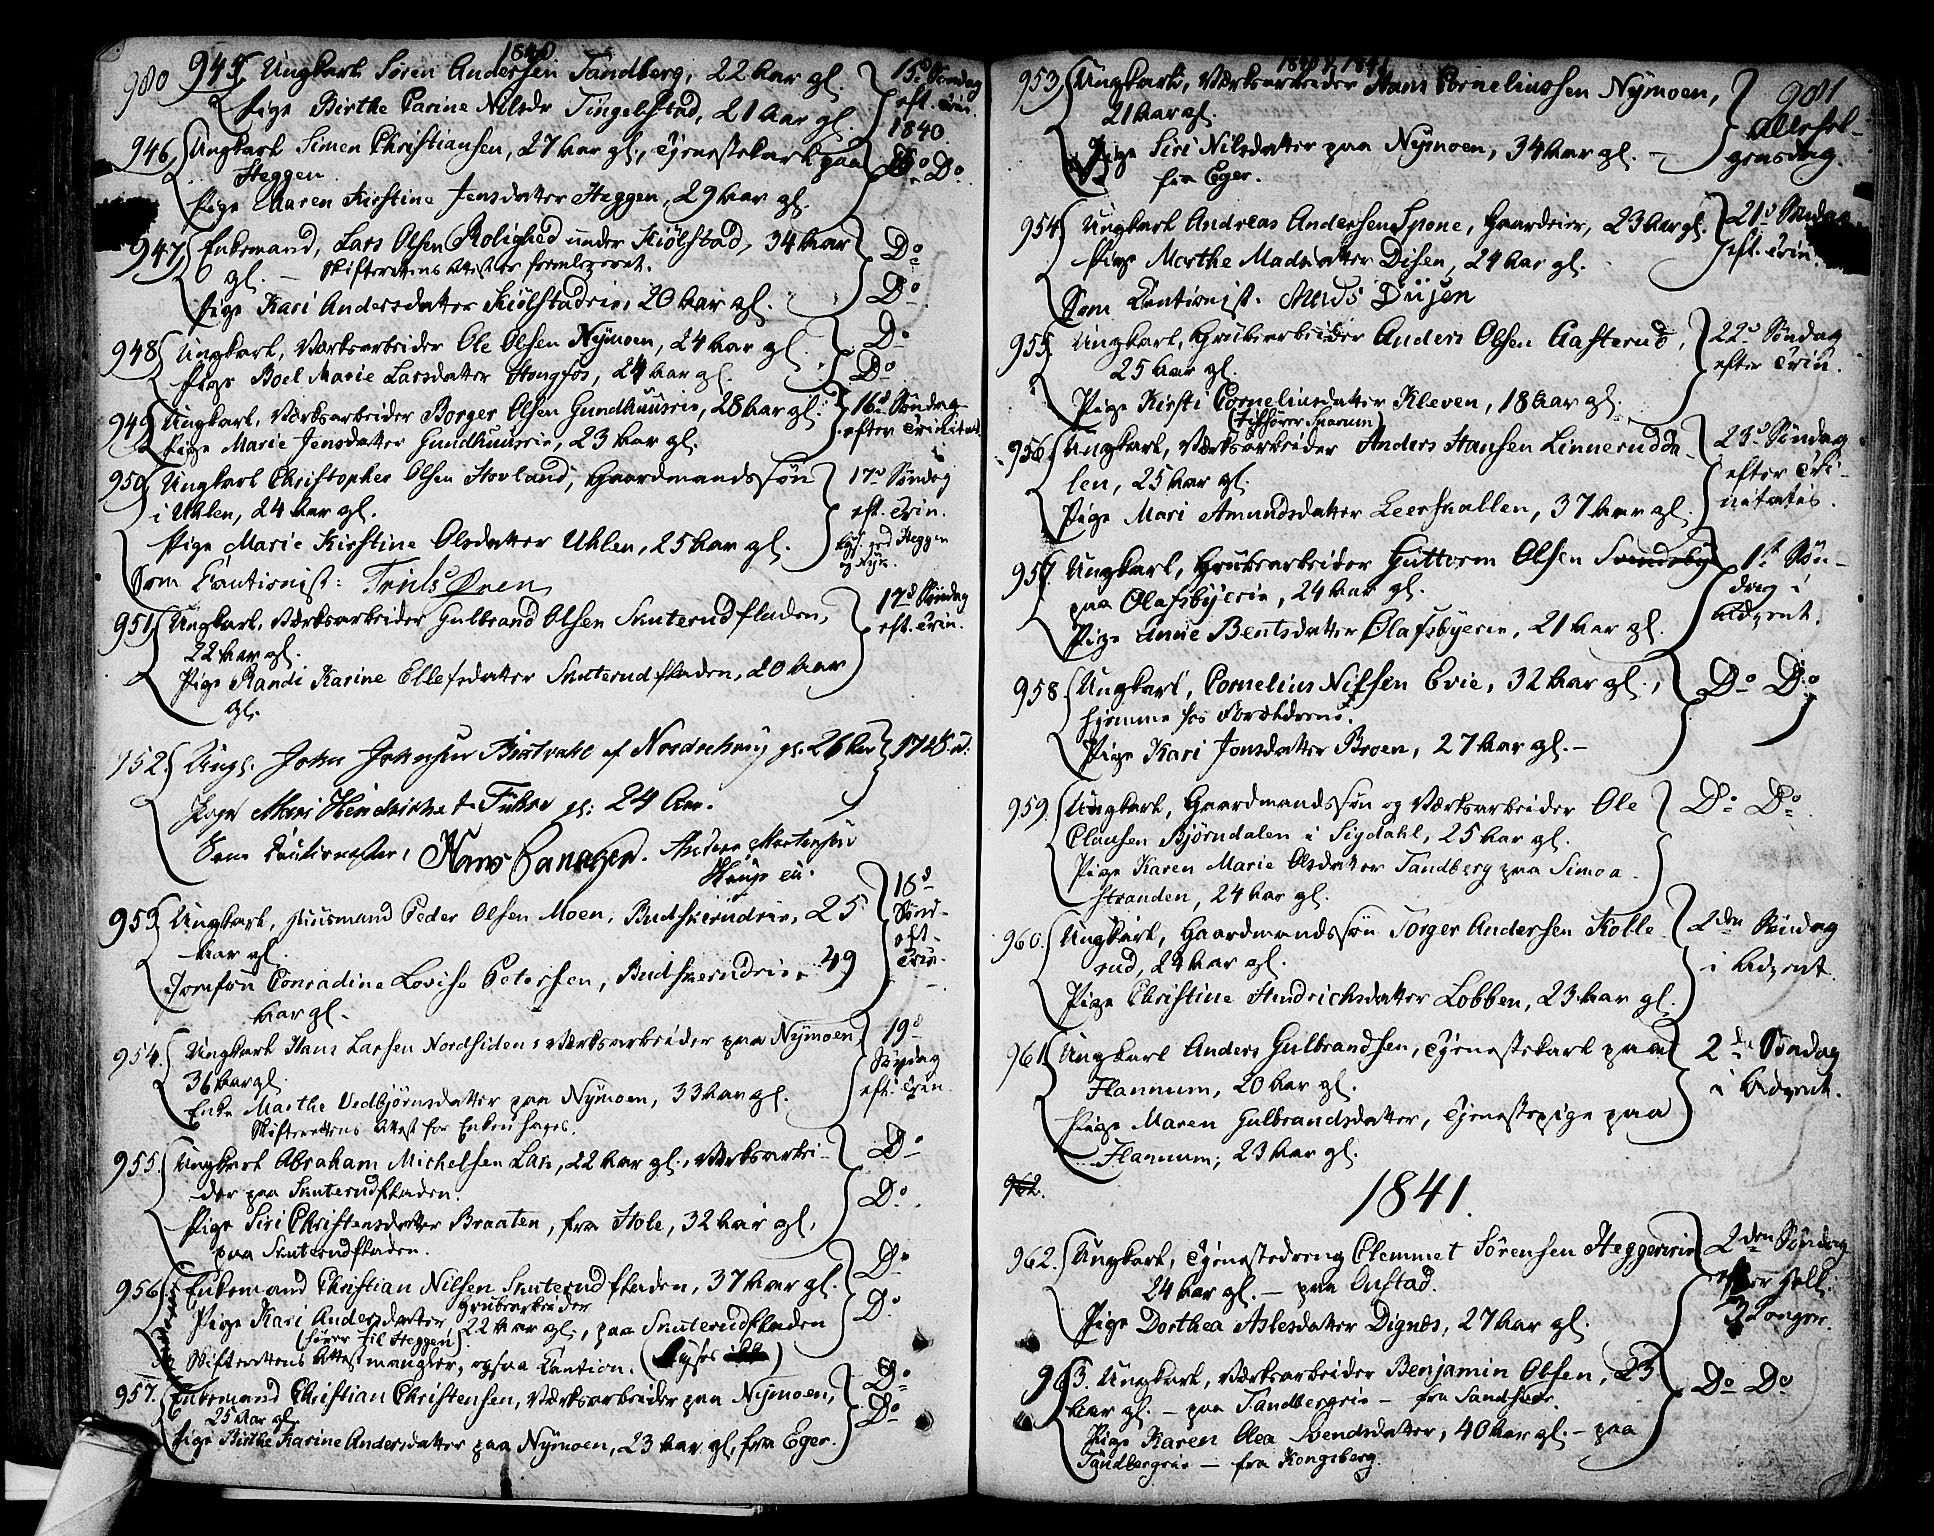 1840
980
945, Ungkarl Søren Andersen Sandberg, 22 Aar gl.
Pige Birthe Carine Nilsdr Tingelstad, 21 Aar gl.
15d Søndag
eft. Trin.
1840.
946, Ungkarl Simen Christiansen, 27 Aar gl., Tjenestekarl paa
Heggen
Pige Maren Kirstine Jensdatter Heggen, 29 Aar gl.
Do Do
947, Enkemand, Lars Olsen Rolighed under Kiølstad, 34 Aar
gl. — Skifterettens Attest er
Pige Kari Andersdatter Kiølstadeie, 20 Aar gl.
Do
Do
948 Ungkarl, Værksarbeider Ole Olsen Nymoen, 24 Aar gl.
Pige Boel Marie Larsdatter Hongfos, 24 Aar gl.
Do
Do
949 Ungkarl, Værksarbeider Borger Olsen Gundhuuseie, 28 Aar gl.
Pige Marie Jensdatter Gundhuuseie, 23 Aar gl.
16d Søndag
efter Trinitat.
950, Ungkarl Christopher Olsen Hovland, Gaardmandssøn
i Uhlen, 24 Aar gl.
Pige Marie Kirstine Olsdatter Uhlen, 25 Aar gl.
Som Cautionist: Truls Øren
17d Søndag
eft. Trin.
951, Ungkarl, Værksarbeider Gulbrand Olsen Snuterudfladen,
22 Aar gl.
Pige Randi Karine Ellefsdatter Snuterudfladen, 20 Aar
gl.
17d Søndag
eft. Trin.
952. Ungk. John Johnsen af 26 Aar
Pige Mari gl: 24 Aar.
Som Cautionister, Hans Anders Mortensen
953 Ungkarl, Huusmand Peder Olsen Moen, Budskerudeie, 25
Aar gl.
Jomfru Conradine Lovise Petersen, Budskerudeie, 49
Aar gl.
18d
Sønd-
eft-
Trin.
954. Ungkarl Hans Larsen Nordsiden, Værksarbeider paa Nymoen
36 Aar gl.
Enke Marthe Vedbjørnsdatter paa Nymoen, 33 Aar gl.
Skifterettens Attest for Enken haves.
19d
Søndag
eft. Trin.
955. Ungkarl Abraham Michelsen Lars, 22 Aar gl., Værksarbei-
der paa Snuterudfladen.
Pige Siri Christensdatter Braaten, fra Hole, 32 Aar gl,
paa Snuterudfladen.
Do
Do
956 Enkemand Christian Nilsen Snuterudfladen, 37 Aar gl.
Grubearbeider
Pige Kari Andersdatter 22 Aar gl., paa Snuterudfladen
(hører til Heggen)
Skifterettens Attest mangler, ogsaa Caution.
Do
Do
957. Enkemand Christian Christensen, Værksarbeider paa Nymoen,
25 Aar gl
Pige Birthe Karine Andersdatter paa Nymoen, 23 Aar gl, fra Eger.
Do
Do
1840 & 1841
981
953, Ungkarl, Værksarbeider Hans Corneliussen Nymoen,
21 Aar gl.
Pige Siri Nilsdatter paa Nymoen, 34 Aar gl. —
fra Eger.
Allehel-
gensdag.
954 Ungkarl Andreas Andersen Spone, Gaardeier, 23 Aar gl.
Pige Merthe Madsdatter Disen, 24 Aar gl.
Som Cautionist. Mads Diisen
21d Søndag
eft. Trin.
955 Ungkarl, Grubearbeider Anders Olsen Aasterud,
25 Aar gl.
Pige Kirsti Corneliusdatter Kleven, 18 Aar gl.
22d Søndag
efter Trin.
(tilhører Snarum)
956 Ungkarl, Værksarbeider Anders Hansen Linnerudda-
len, 25 Aar gl.
Pige Mari Amundsdatter Leerskallen, 37 Aar gl.
23d Søndag
efter Tri-
nitatis.
957 Ungkarl, Grubearbeider Guttorm Olsen
paa Olafsbyeeie, 24 Aar gl.
Pige Anne Bentsdatter Olafsbyeeie, 21 Aar gl.
1st Søn-
dag i
Advent.
958 Ungkarl, Cornelius Nilsen Evie, 32 Aar gl.,
hjemme hos Forældrene.
Pige Kari Jonsdatter Broen, 27 Aar gl. —
Do Do
959. Ungkarl, Gaardmandssøn og Værksarbeider Ole
Clausen Bjørndalen i Sigdahl, 25 Aar gl.
Pige Karen Marie Olsdatter Sandberg paa Simoa-
stranden, 24 Aar gl.
Do Do
960. Ungkarl, Gaardmandssøn Torger Andersen Kolle-
rud, 24 Aar gl.
Pige Christine Hendrichsdatter Lobben, 23 Aar gl.
2den Søndag
i Advent.
961 Ungkarl Anders Gulbrandsen, Tjenestekarl paa
Flannum, 20 Aar gl.
Pige Maren Gulbrandsdatter, Tjenestepige paa
Flannum, 23 Aar gl.
2d Søndag
i Advent.
962.
1841.
962. Ungkarl, Tjenestedreng Clemmet Sørensen Heggeneie
24 Aar gl. — paa Enstad.
Pige Dorthea Aslesdatter Dignes, 27 Aar gl.
2den Søndag
efter Hell.
3 Konger.
963. Ungkarl, Værksarbeider Benjamin Olsen, 23
Aar gl. — paa Sandbergeie — fra Sandsvær.
Pige Karen Olea Svendsdatter, 40 Aar gl. — paa
Sandbergeie — fra Kongsberg.
Do Do